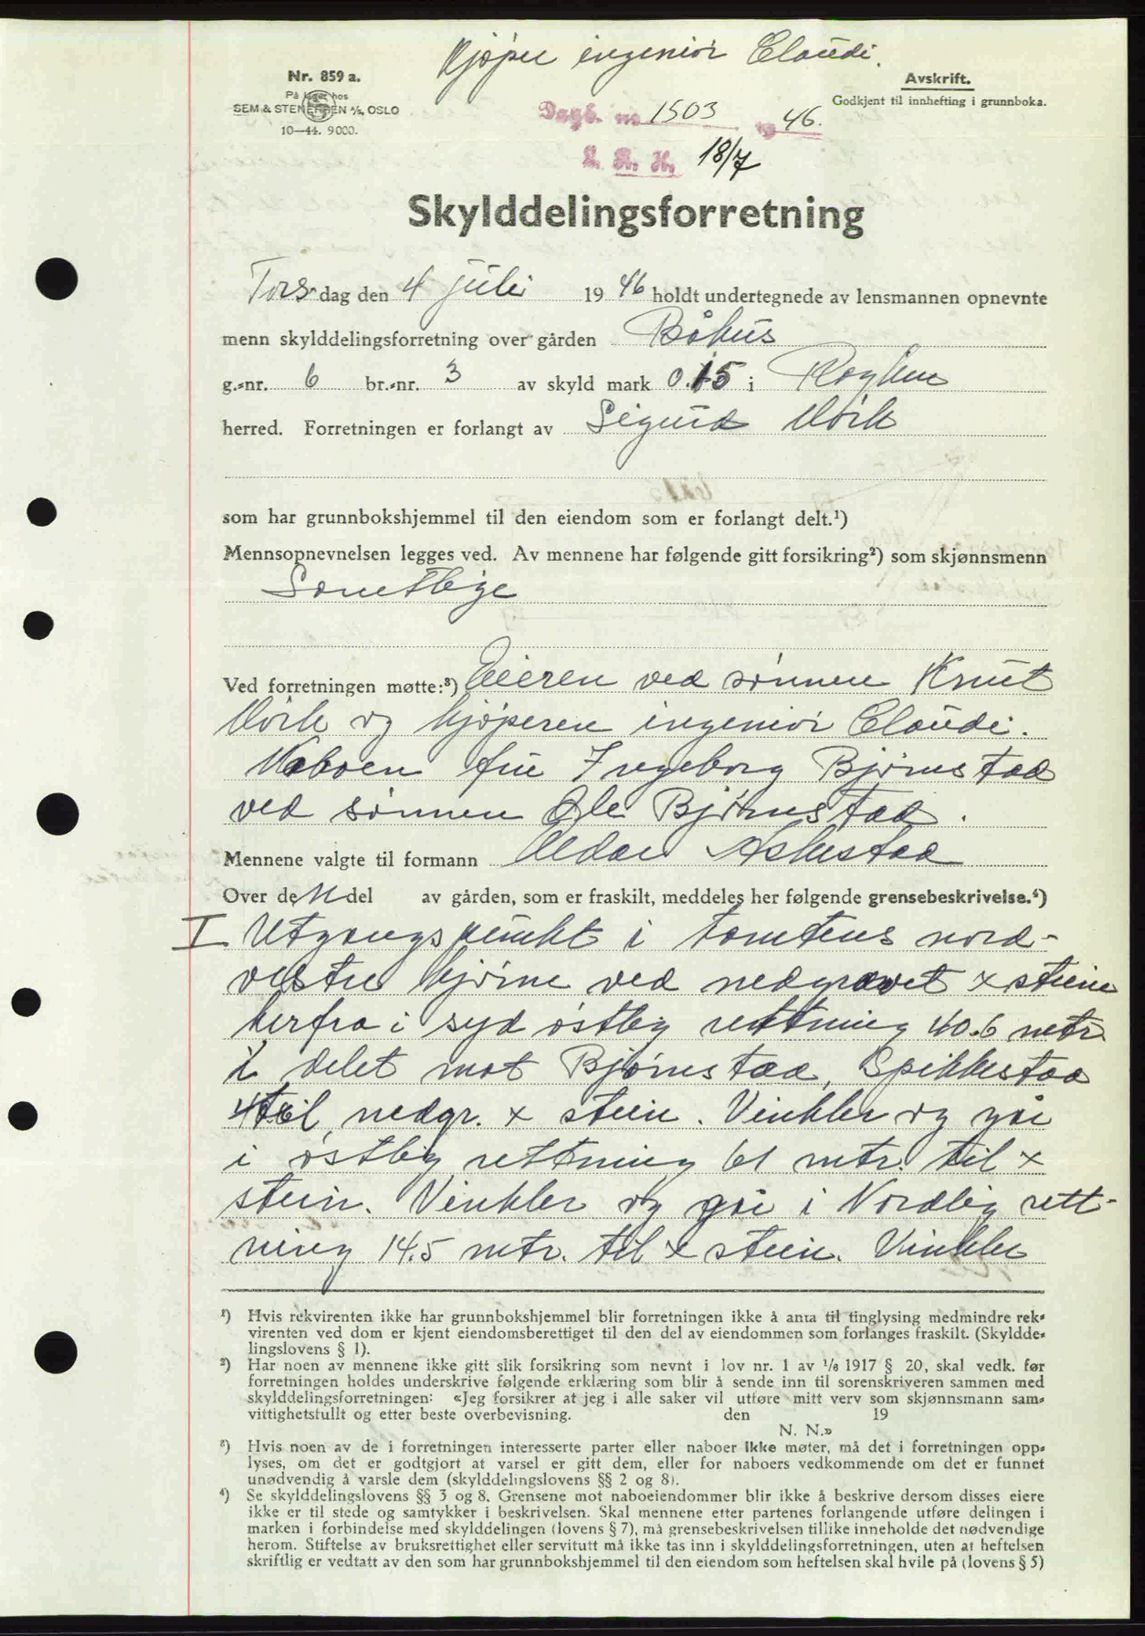 Kjøper ingeniør Claudi.
Nr. 859 a.
På lager hos
SEM & STENERSEN A/S, OSLO
10—44. 9000.
Avskrift.
Godkjent til innhefting i grunnboka.
Dagb. nr. 1503 19 46.
L. R. H. 18/7
Skylddelingsforretning
Tors dag den 4 juli 19 46 holdt undertegnede av lensmannen opnevnte
menn skylddelingsforretning over gården Båhus
g.-nr. 6 br.-nr. 3 av skyld mark 0.15 i Røyken
herred. Forretningen er forlangt av Sigurd Mörk
som har grunnbokshjemmel til den eiendom som er forlangt delt.¹)
Mennsopnevnelsen legges ved. Av mennene har følgende gitt forsikring²) som skjønnsmenn
Samtlige
Ved forretningen møtte:³) Eieren ved sønnen Knut
Mörk og kjøperen ingeniør Claudi.
Naboen fru Ingeborg Bjørnstad
ved sønnen Ole Bjørnstad.
Mennene valgte til formann Aldor Askestad
Over den del av gården, som er fraskilt, meddeles her følgende grensebeskrivelse.⁴)
I Utgangspunkt i tomtens nord-
vestre hjørne ved nedgravet x stein
herfra i syd østlig rettning 40.6 mtr.
i delet mot Bjørnstad, Spikkestad
til nedgr. x stein. Vinkler og går
i østlig rettning 61 mtr. til x
stein. Vinkler og går i Nordlig rett-
ning 14.5 mtr. til x stein. Vinkler
¹) Hvis rekvirenten ikke har grunnbokshjemmel blir forretningen ikke å anta til tinglysing medmindre rek-
virenten ved dom er kjent eiendomsberettiget til den del av eiendommen som forlanges fraskilt. (Skyldde-
lingslovens § 1).
²) Har noen av mennene ikke gitt slik forsikring som nevnt i lov nr. 1 av 1/6 1917 § 20, skal vedk. før
forretningen holdes underskrive følgende erklæring som blir å sende inn til sorenskriveren sammen med
skylddelingsforretningen: «Jeg forsikrer at jeg i alle saker vil utføre mitt verv som skjønnsmann sam-
vittighetsfullt og etter beste overbevisning. den 19
N. N.»
³) Hvis noen av de i forretningen interesserte parter eller naboer ikke møter, må det i forretningen opp-
lyses, om det er godtgjort at varsel er gitt dem, eller for naboers vedkommende om det er funnet
unødvendig å varsle dem (skylddelingslovens §§ 2 og 8).
⁴) Se skylddelingslovens §§ 3 og 8. Grensene mot naboeiendommer blir ikke å beskrive dersom disses eiere
ikke er til stede og samtykker i beskrivelsen. Skal mennene etter partenes forlangende utføre delingen i
marken i forbindelse med skylddelingen (lovens § 7), må grensebeskrivelsen tillike inneholde det nødvendige
herom. Stiftelse av bruksrettighet eller servitutt må ikke tas inn i skylddelingsforretningen, uten at heftelsen
skriftlig er vedtatt av den som har grunnbokshjemmel til den eiendom som heftelsen skal hvile på (lovens § 5)